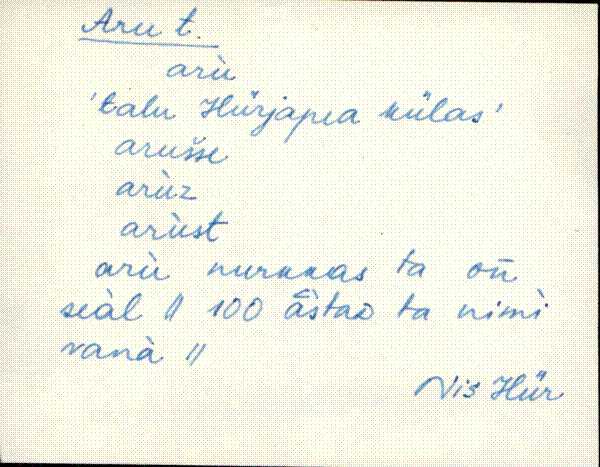 Aru t.
arù
'talu Hürjapea külas'
arušše
arùz
arùst
arù nurkkas ta on̄
seàl // 100 āstad ta nimì
vanà //
Vis Hür